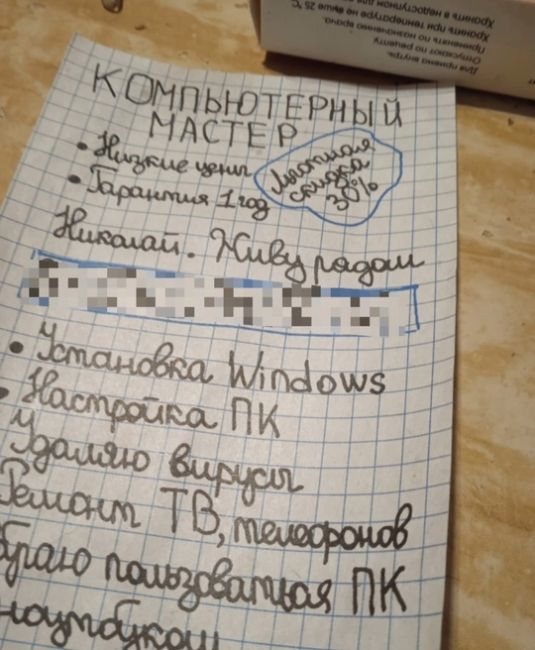 Для приема внутрь.
Отпускают по рецепту.
Применять по назначению врача.
Хранить при температуре не выше 25 °C
Хранить в недоступном для
КОМПЬЮТЕРНЫЙ
МАСТЕР
• Низкие цены
• Гарантия 1 год
Льготная
скидка
30%
Николай. Живу рядом
• Установка Windows
• Настройка ПК
Удаляю вирусы
Ремонт ТВ, телефонов
пользоваться ПК
ноутбуком